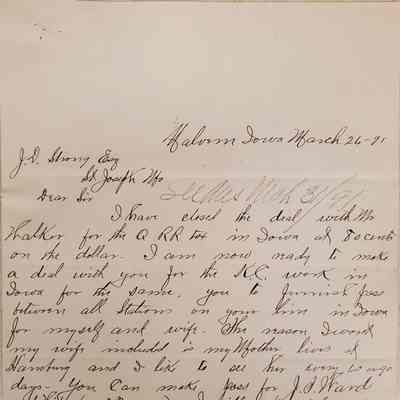 Malvern Iowa March 26-91
J.D. Strong Esq
St. Joseph Mo
Dear Sir
I have closed the deal with Mr
Walker for the Q RR tax in Iowa at 80 cents
on the dollar. I am now ready to make
a deal with you for the K.C. work in
Iowa for the same, you to furnish pass
between all Stations on your line in Iowa
for myself and wife. The reason I want
my wife included is my Mother lives at
Hamburg and I like to see her every
days- You Can make pass for J.P. Ward